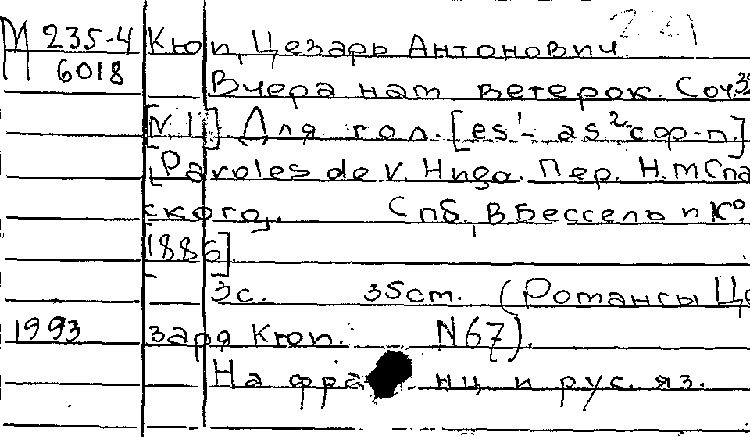 М 235-4 Кюи, Цезарь Антонович
6018 Вчера нам ветерок. Соч 3
[N 1] Для гол. [es¹- as² с ф-п]
[Paroles de V. Hugo. Пер. Н. М Спа
ского. Спб, В Бессель и К°.
[1886]
3с. 35cm. (Романсы Це
1993 заря Кюи. N67).
На фра нц и рус. яз.